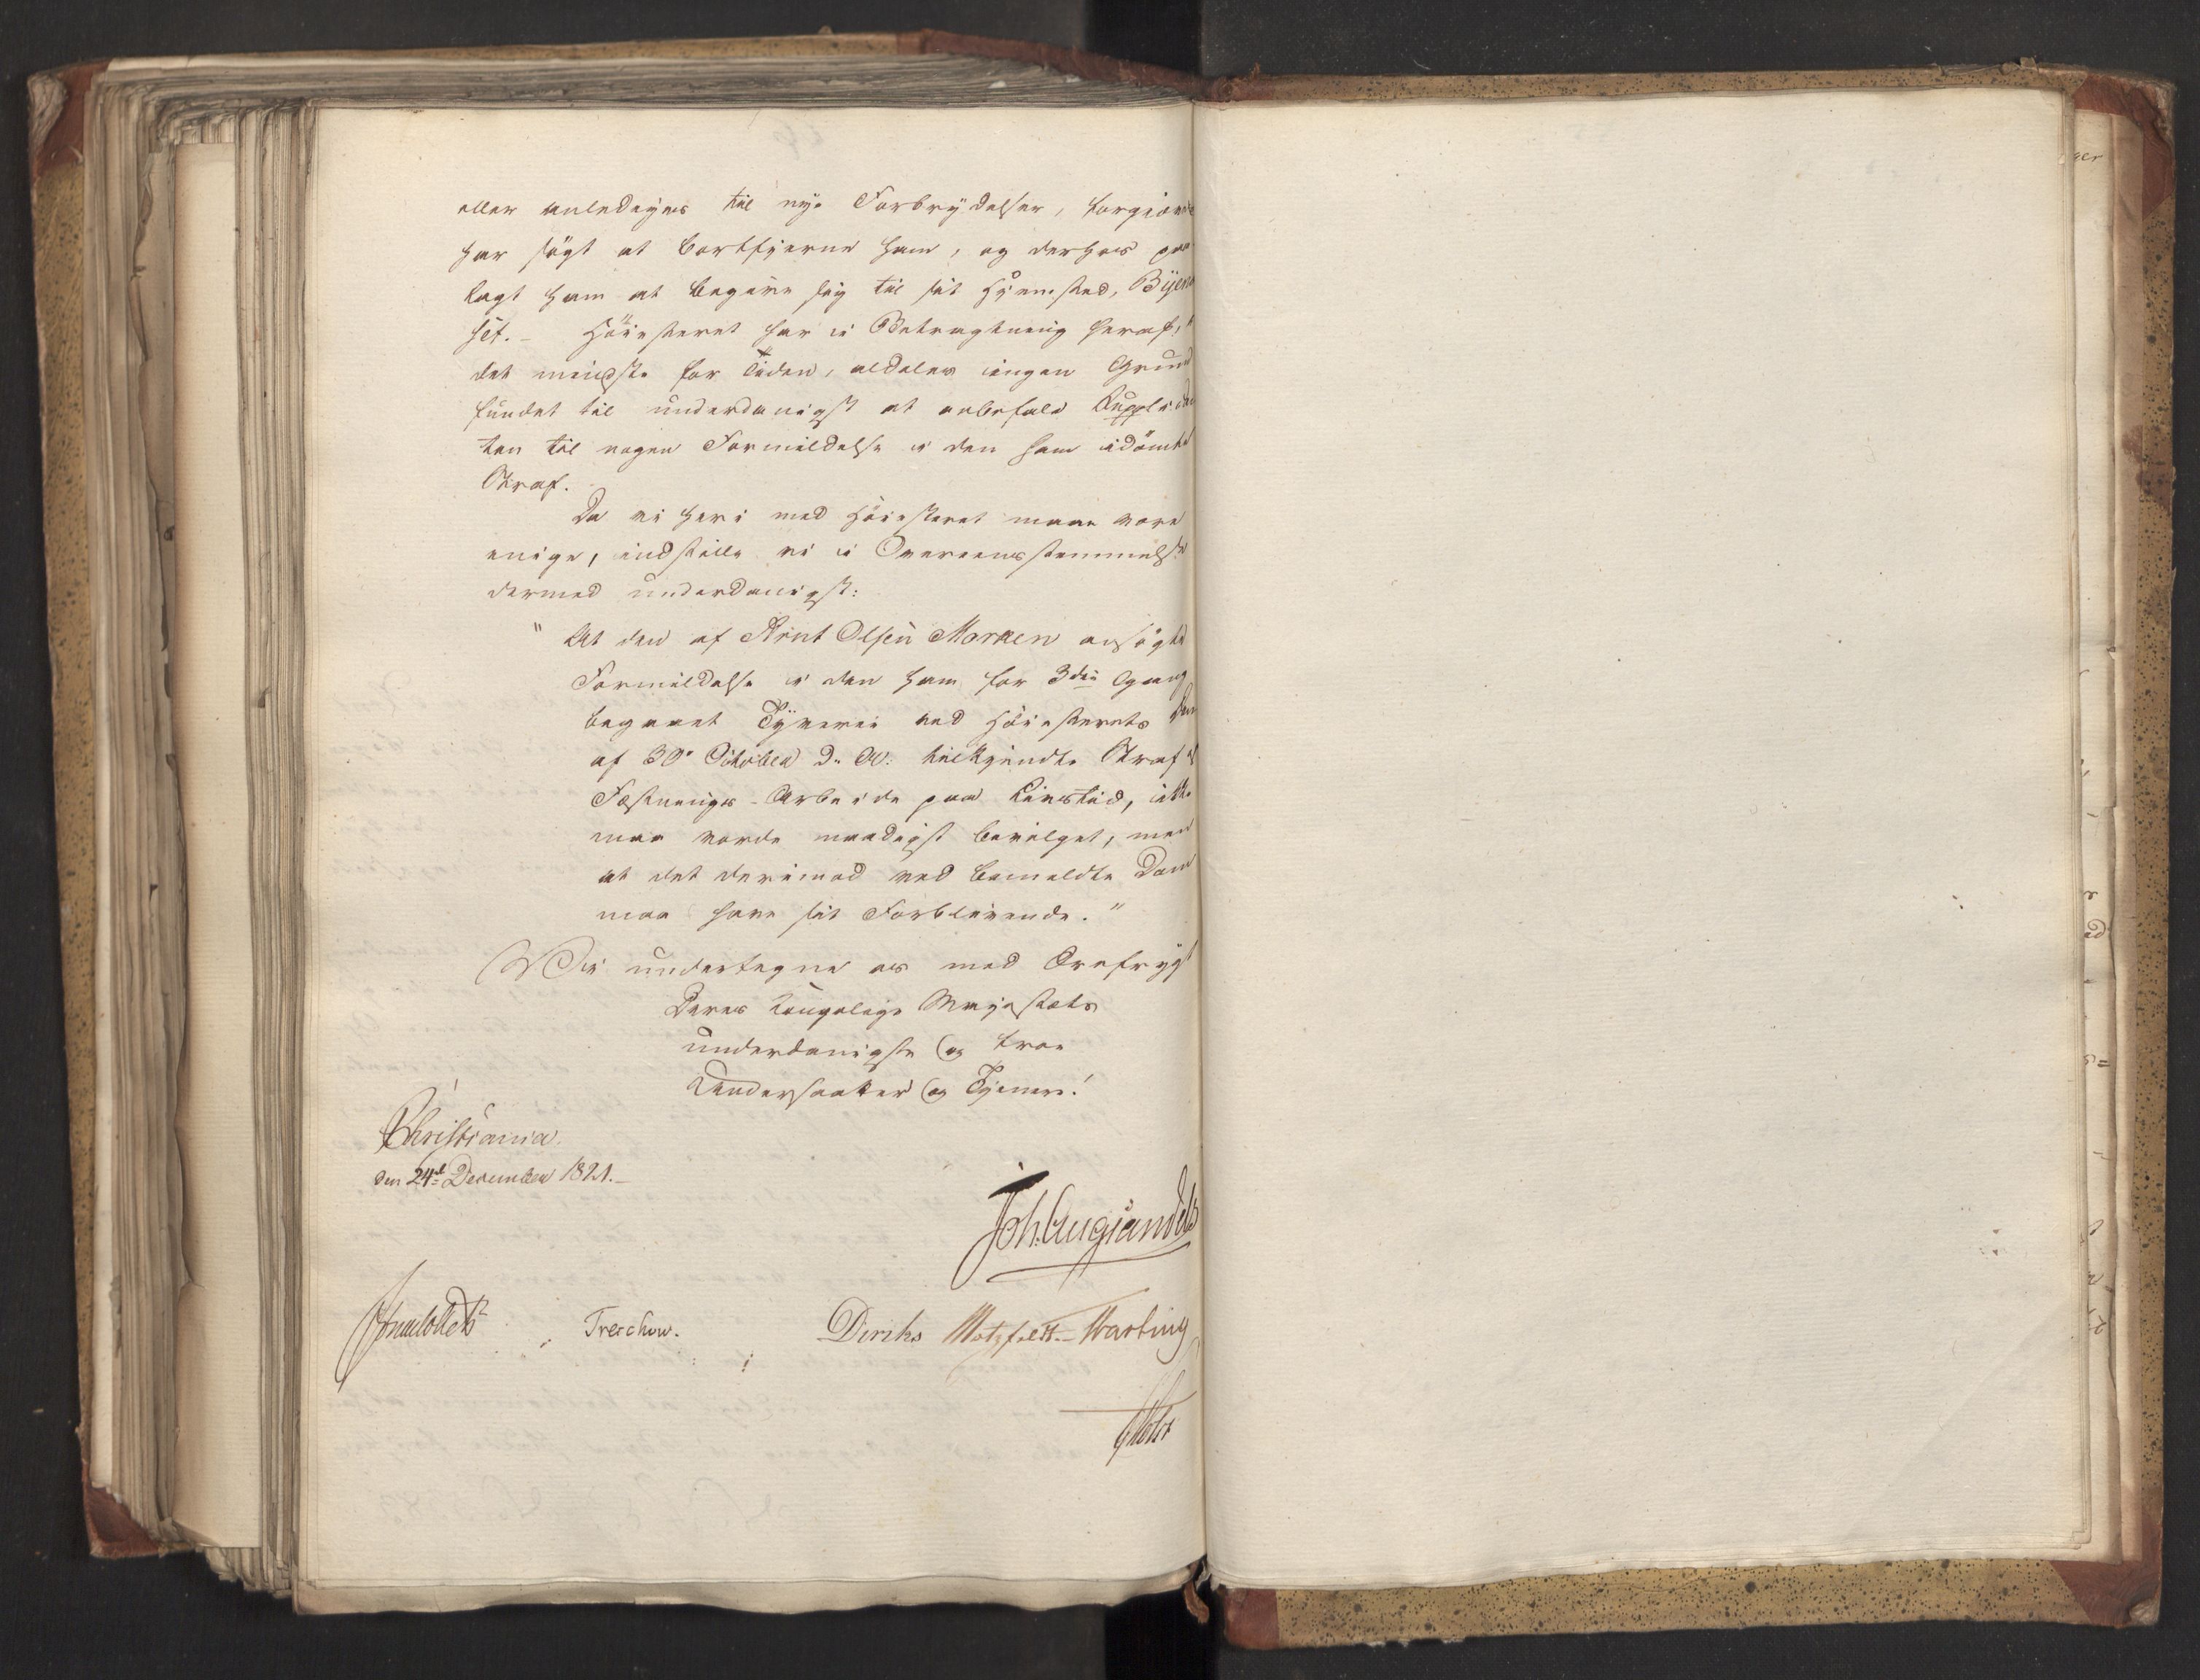 eller anledigen til nye Forbrydelser, forgiæves
har søgt at bortfjerne ham, og derhos paa-
lagt ham at begive sig til sit Hjemsted, Bijen
set. – Höiesteret har i Betragtning heraf, i
det mindste for Tiden, aldeles ingen Grund
fundet til underdanigst at anbefale Supplican
ten til nogen Formildelse i den ham idömte
Straf.
Da vi heri med Höiesteret maae være
enige, indstille vi i Overeensstemmelse
dermed underdanigst:
"At den af Arnt Olsen Marken ansögte
Formildelse i den ham for 3die Gang
begaaet Tyverie ved Höiesterets Dom
af 30 October d. A. tilkjendte Straf af
Fæstnings-Arbeide paa Livstid, ikke
maa vorde naadigst bevilget, men
at det derimod ved bemeldte Dom
maa have sit Forblivende."
Vi undertegne os med Ærefrygt
Deres Kongelige Majestæts
underdanigste og troe
Undersaatter og Tjenere!
Christiania
den 24d December 1821.
Joh. Aug. Sandels
Treschow.
Diriks Motzfeldt. Fasting
Holst